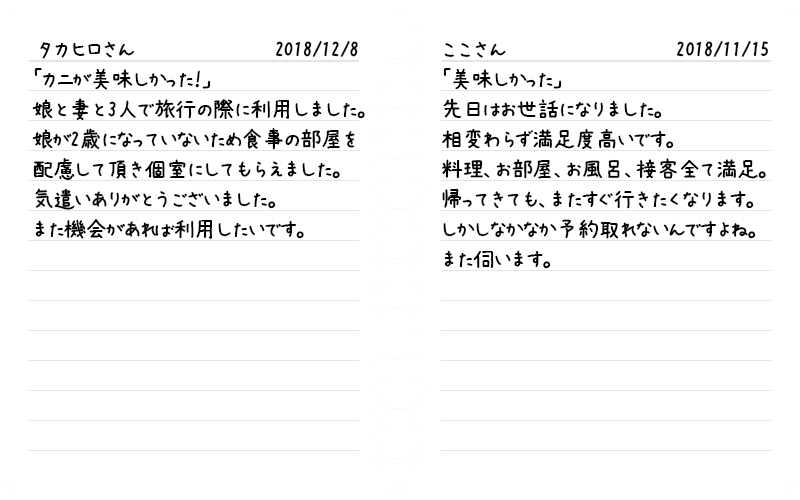 タカヒロさん 2018/12/8
「カニが美味しかった!」
娘と妻と3人で旅行の際に利用しました。
娘が2歳になっていないため食事の部屋を
配慮して頂き個室にしてもらえました。
気遣いありがとうございました。
また機会があれば利用したいです。
ここさん 2018/11/15
「美味しかった」
先日はお世話になりました。
相変わらず満足度高いです。
料理、お部屋、お風呂、接客全て満足。
帰ってきても、またすぐ行きたくなります。
しかしなかなか予約取れないんですよね。
また伺います。